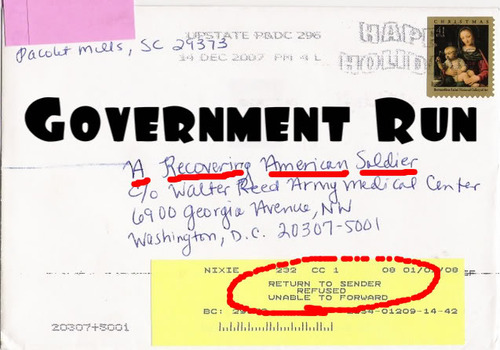 Pacolet Mills, SC 29373
UPSTATE P&DC 296
14 DEC 2007 PM 4 L
HAPPY
HOLID
CHRISTMAS
41
GOVERNMENT RUN
A Recovering American Soldier
c/o Walter Reed Army Medical Center
6900 Georgia Avenue, NW
Washington, D.C. 20307-5001
NIXIE 232 CC 1 08 01/0 /08
RETURN TO SENDER
REFUSED
UNABLE TO FORWARD
BC: 29 34-01209-14-42
20307+5001